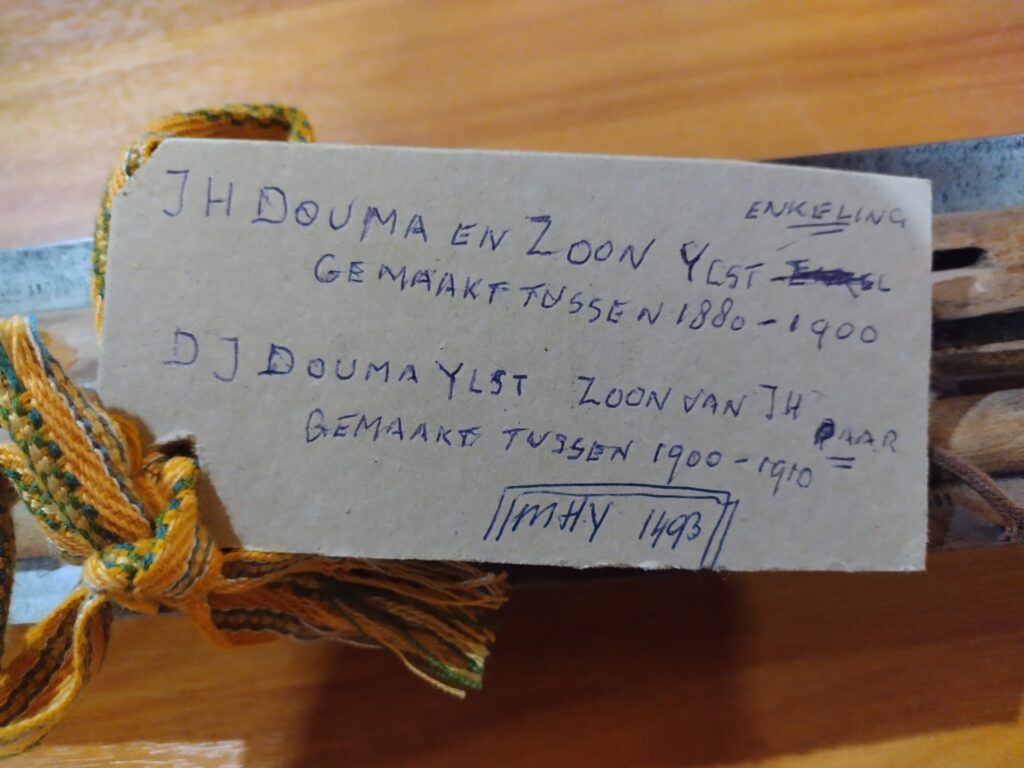 ENKELING
JH DOUMA EN ZOON YLST
GEMAAKT TUSSEN 1880-1900
DJ DOUMA YLST ZOON VAN JH
PAAR
GEMAAKT TUSSEN 1900-1910
MHY 1493